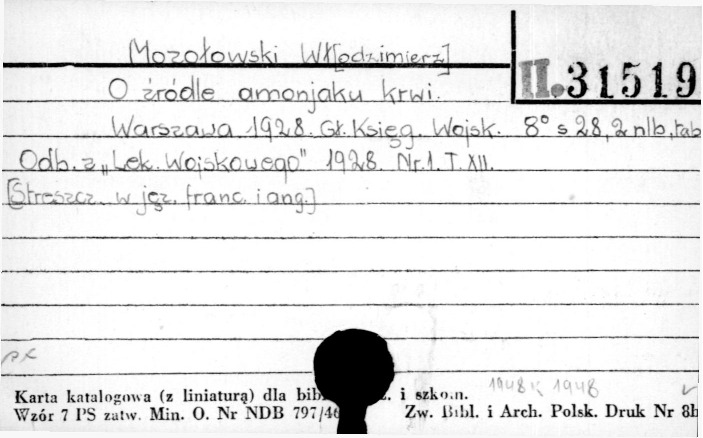 Mozołowski Wł[odzimierz]
II.31519
O źródle amonjaku krwi.
Warszawa 1928. Gł. Księg. Wojsk. 8° s 28, 2 nlb, tab
Odb. z „Lek. Wojskowego" 1928. Nr. 1. T. XII.
[Streszcz. w jęz. franc. i ang.]
1948 1948
Karta katalogowa (z liniaturą) dla i szkoln.
Wzór 7 PS zatw. Min. O. Nr NDB 797/46 Zw. Bibl. i Arch. Polsk. Druk Nr 8b